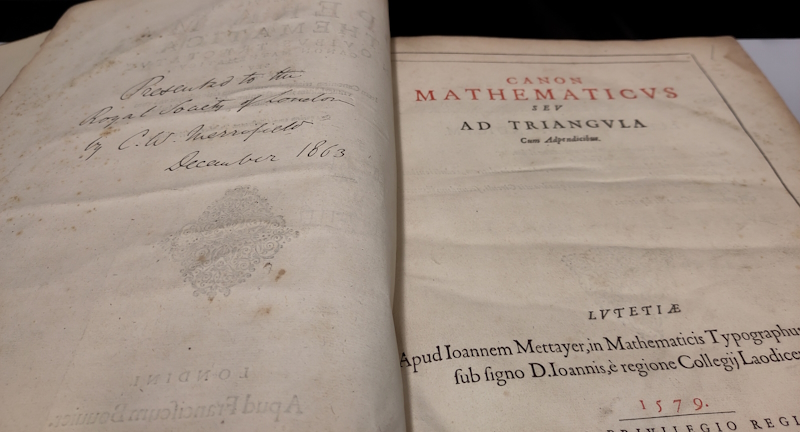 Presented to the
Royal Society of London
by C. W. Merrifield
December 1863
LONDINI
Apud Franciscum Bouvier.
CANON
MATHEMATICVS
SEV
AD TRIANGVLA
Cum Adpendicibus.
LVTETIÆ
Apud Ioannem Mettayer, in Mathematicis Typographu
sub signo D. Ioannis, è regione Collegij Laodice
1579.
PRIVILEGIO REGI